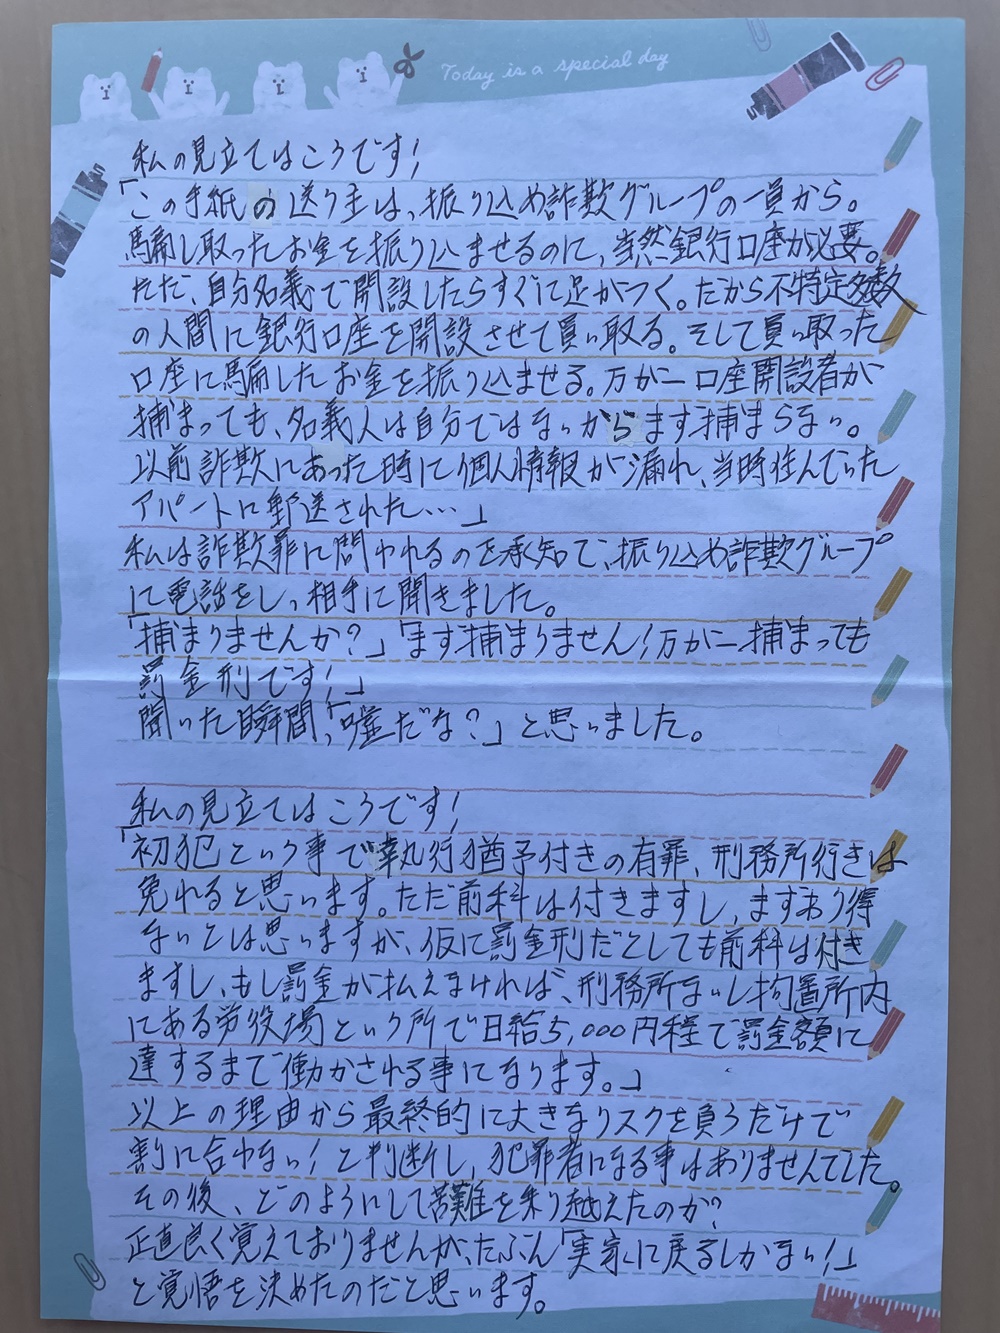 Today is a special day
私の見立てはこうです!
「この手紙の送り主は、振り込め詐欺グループの一員から。
騙し取ったお金を振り込ませるのに、当然銀行口座が必要。
ただ、自分名義で開設したらすぐに足がつく。だから不特定多数
の人間に銀行口座を開設させて買い取る。そして買い取った
口座に騙したお金を振り込ませる。万が一口座開設者が
捕まっても、名義人は自分ではないからまず捕まらない。
以前詐欺にあった時に個人情報が漏れ、当時住んでいた
アパートに郵送された…」
私は詐欺罪に問われるのを承知で、振り込め詐欺グループ
に電話をし、相手に聞きました。
「捕まりませんか?」「まず捕まりません!万が一捕まっても
罰金刑です!」
聞いた瞬間、「嘘だな?」と思いました。
私の見立てはこうです!
「初犯という事で執行猶予付きの有罪、刑務所行きは
免れると思います。ただ前科は付きますし、まずあり得
ないとは思いますが、仮に罰金刑だとしても前科は付き
ますし、もし罰金が払えなければ、刑務所ないし拘置所内
にある労役場という所で日給5,000円程で罰金額に
達するまで働かされる事になります。」
以上の理由から最終的に大きなリスクを負うだけで
割に合わない!と判断し、犯罪者になる事はありませんでした。
その後、どのようにして苦難を乗り越えたのか?
正直良く覚えておりませんが、たぶん「実家に戻るしかない!」
と覚悟を決めたのだと思います。